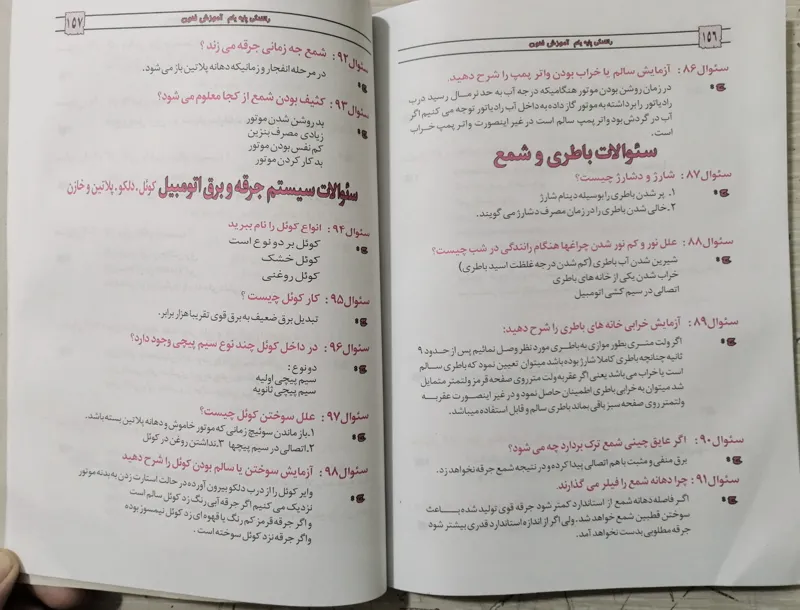 ۱۵۶
رانندگی پایه یکم آموزش فنون
سئوال۸۶: آزمایش سالم یا خراب بودن واتر پمپ را شرح دهید.
در زمان روشن بودن موتور هنگامیکه درجه آب به حد نرمال رسید درب
رادیاتور را برداشته به موتور گاز داده به داخل آب رادیاتور توجه می کنیم اگر
آب در گردش بود واتر پمپ سالم است در غیر اینصورت واتر پمپ خراب
است.
سئوالات باطری و شمع
سئوال۸۷: شارژ و دشارژ چیست؟
۱. پر شدن باطری را بوسیله دینام شارژ
۲.خالی شدن باطری را در زمان مصرف دشارژ می گویند.
سئوال۸۸: علل نور و کم نور شدن چراغها هنگام رانندگی در شب چیست؟
شیرین شدن آب باطری (کم شدن درجه غلظت اسید باطری)
خراب شدن یکی از خانه های باطری
اتصالی در سیم کشی اتومبیل
سئوال۸۹: آزمایش خرابی خانه های باطری را شرح دهید:
اگر ولت متری بطور موازی به باطری مورد نظر وصل نمائیم پس از حدود ۹
ثانیه چنانچه باطری کاملا شارژ بوده باشد میتوان تعیین نمود که باطری سالم
است یا خراب می باشد یعنی اگر عقربه ولت متر روی صفحه قرمز ولتمتر متمایل
شد میتوان به خرابی باطری اطمینان حاصل نمود و در غیر اینصورت عقربه
ولتمتر روی صفحه سبز باقی بماند باطری سالم و قابل استفاده میباشد.
سئوال۹۰: اگر عایق چینی شمع ترک بردارد چه می شود؟
برق منفی و مثبت با هم اتصالی پیدا کرده و در نتیجه شمع جرقه نخواهد زد.
سئوال۹۱: چرا دهانه شمع را فیلر می گذارند.
اگر فاصله دهانه شمع از استاندارد کمتر شود جرقه قوی تولید شده باعث
سوختن قطبین شمع خواهد شد. ولی اگر از اندازه استاندارد قدری بیشتر شود
جرقه مطلوبی بدست نخواهد آمد.
رانندگی پایه یکم آموزش فنون
۱۵۷
سئوال۹۲: شمع چه زمانی جرقه می زند؟
در مرحله انفجار و زمانیکه دهانه پلاتین باز می شود.
سئوال۹۳: کثیف بودن شمع از کجا معلوم می شود؟
بد روشن شدن موتور
زیادی مصرف بنزین
کم نفس بودن موتور
بد کار کردن موتور
سئوالات سیستم جرقه و برق اتومبیل کوئل.دلکو.پلاتین و خازن
سئوال۹۴: انواع کوئل را نام ببرید
کوئل بر دو نوع است
کوئل خشک
کوئل روغنی
سئوال۹۵: کار کوئل چیست؟
تبدیل برق ضعیف به برق قوی تقریبا هزار برابر.
سئوال۹۶: در داخل کوئل چند نوع سیم پیچی وجود دارد؟
دو نوع:
سیم پیچی اولیه
سیم پیچی ثانویه
سئوال۹۷: علل سوختن کوئل چیست؟
۱.باز ماندن سوئیچ زمانی که موتور خاموش و دهانه پلاتین بسته باشد.
۲.اتصالی در سیم پیچها ۳.نداشتن روغن در کوئل
سئوال۹۸: آزمایش سوختن یا سالم بودن کوئل را شرح دهید
وایر کوئل را از درب دلکو بیرون آورده در حالت استارت زدن به بدنه موتور
نزدیک می کنیم اگر جرقه آبی رنگ زد کوئل سالم است
و اگر جرقه قرمز کم رنگ یا قهوه ای زد کوئل نیمسوز بوده
و اگر جرقه نزد کوئل سوخته است.